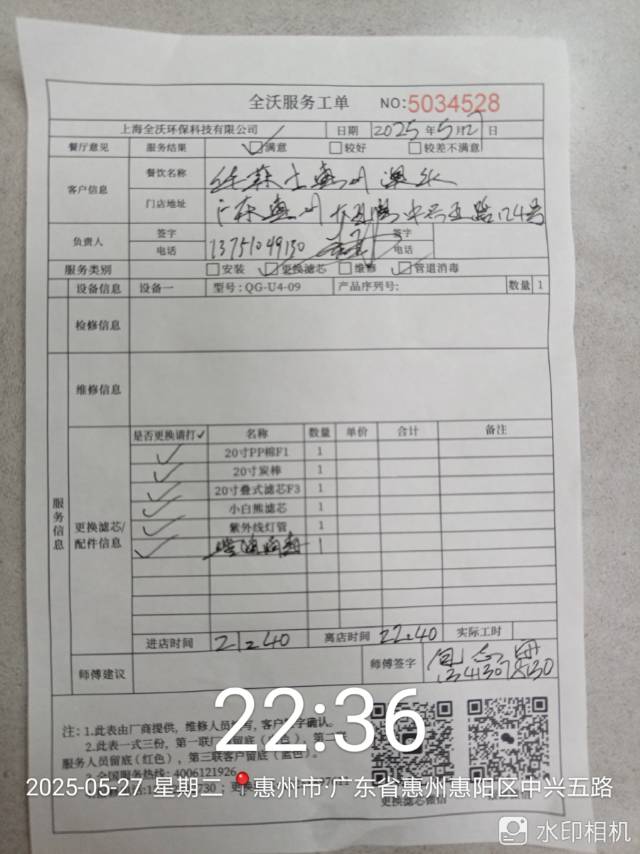 全沃服务工单 NO:5034528
上海全沃环保科技有限公司 日期 2025年5月27日
餐厅意见 服务结果 满意 较好 较差不满意
客户信息 餐饮名称
门店地址 广东惠州 中兴五路124号
负责人 签字 签字
电话 13751049130 电话
服务类别 安装 更换滤芯 维修 管道消毒
设备信息 设备一 型号:QG-U4-09 产品序列号: 数量 1
检修信息
维修信息
服务信息
更换滤芯/配件信息
是否更换请打✓ 名称 数量 单价 合计 备注
✓ 20寸PP棉F1 1
✓ 20寸炭棒 1
✓ 20寸叠式滤芯F3 1
✓ 小白熊滤芯 1
✓ 紫外线灯管 1
✓ 1
进店时间 21:40 离店时间 22:40 实际工时
师傅建议 师傅签字
注:1.此表由厂商提供,维修人员填写,客户签字确认。
2.此表一式三份,第一联厂
服务人员留底(红色),第三联客户留底(蓝色)。
全国服务热线:4006121926
更换滤芯微信
22:36
2025-05-27 星期二 惠州市·广东省惠州惠阳区中兴五路
水印相机